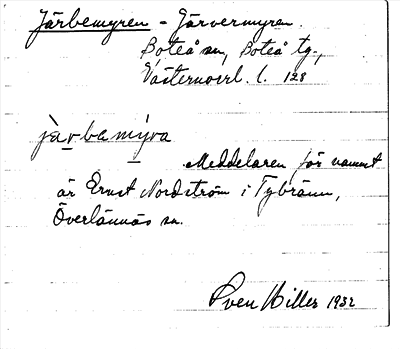 Järbemyren - Järvermyren.
Boteå sn, Boteå tg.,
Västernorrl. l. 128
jàrbemýra
Meddelaren för namnet
är Ernst Nordström i Tybränn,
Överlännäs sn.
Sven Hiller 1932